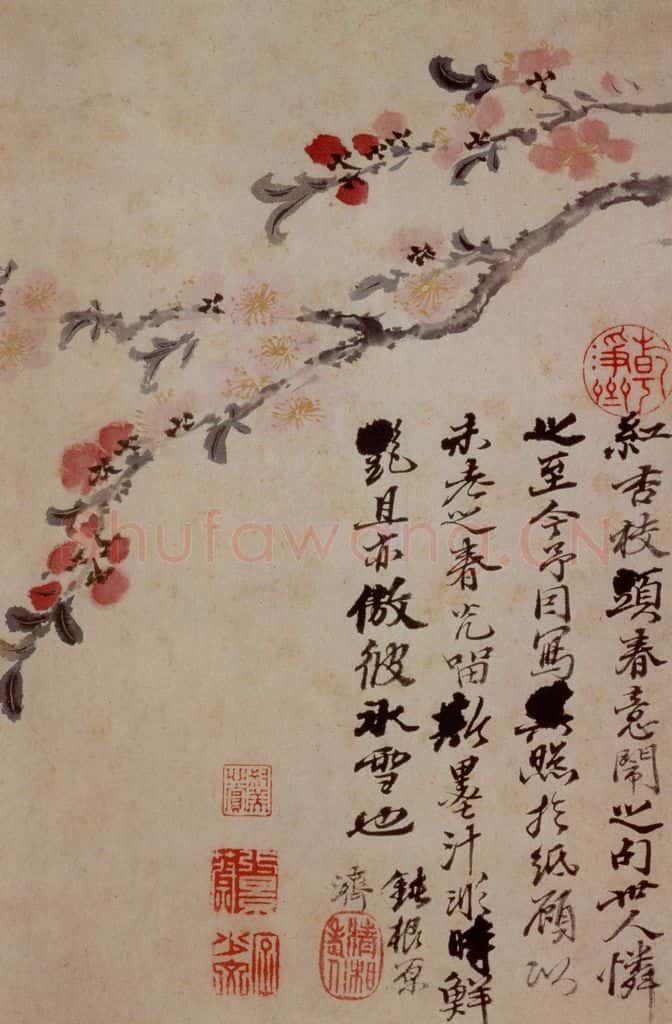 紅杏枝頭春意鬧之句世人憐
之至今予因寫其照於紙顧以
未老之春光留斯墨汁形時鮮
艷且亦傲彼冰雪也
鈍根原
濟
清湘老人
shufawang.CN